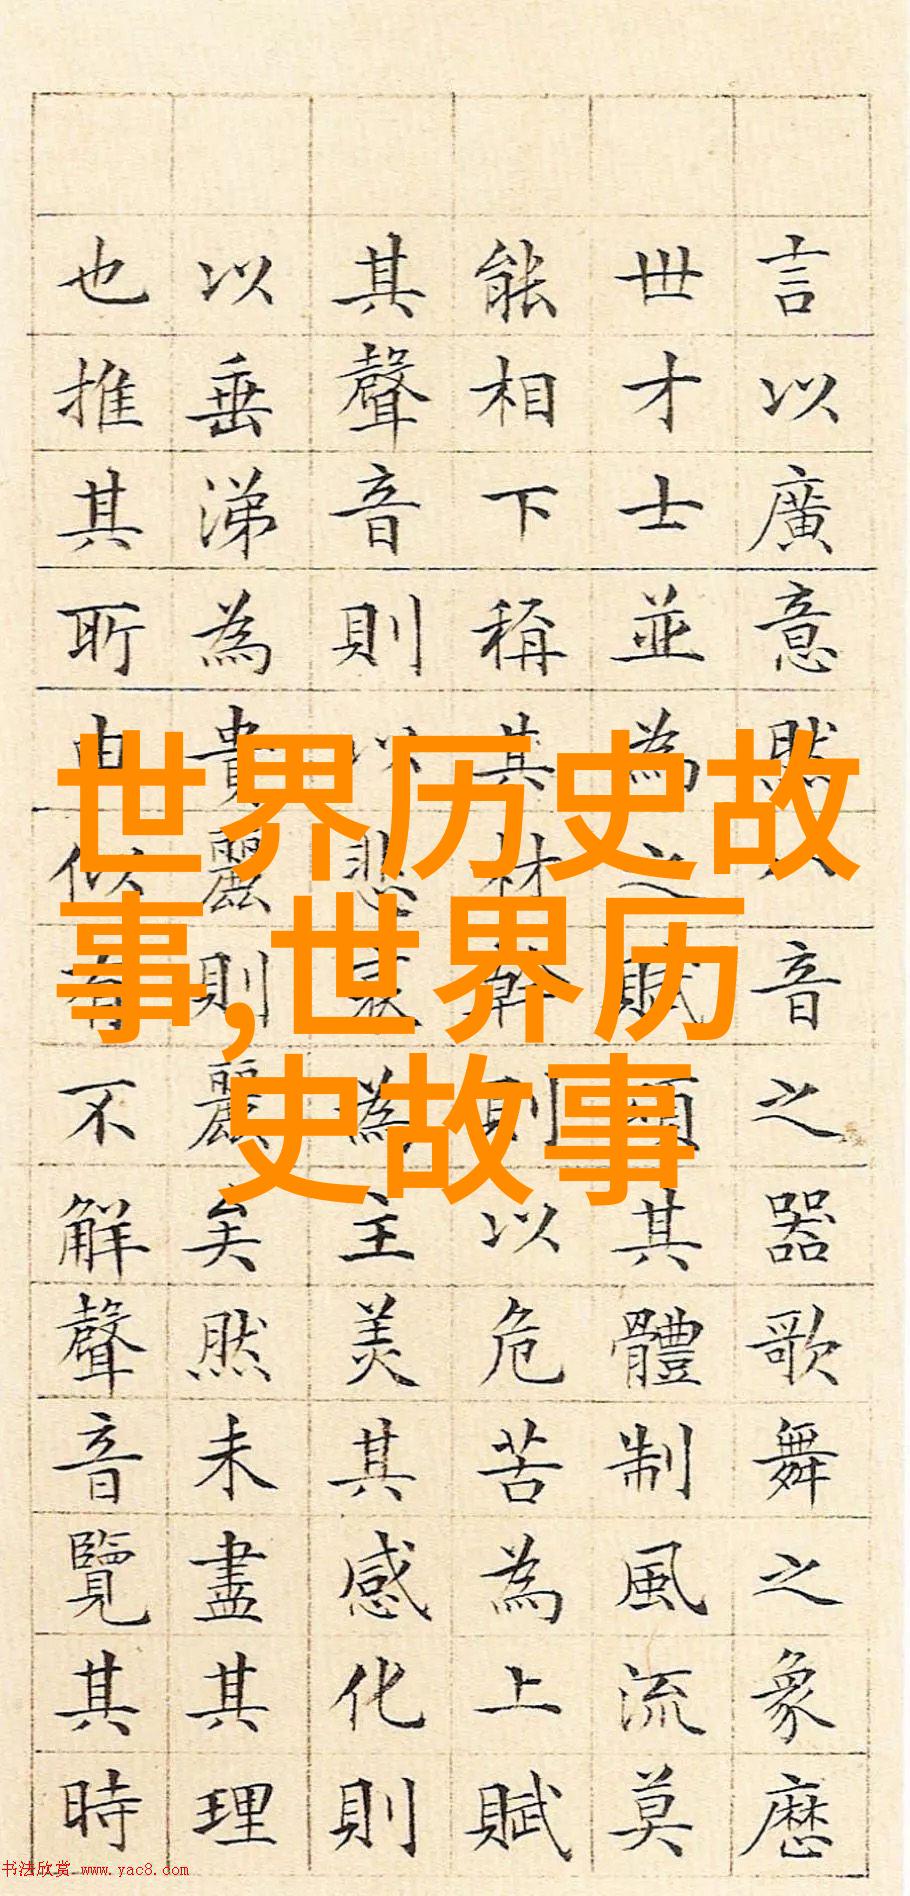 言以廣意然音之器歌舞之象歷
世才士並為之賦頌其體制風流莫
能相下稱其材幹則以危苦為上賦
其聲音則以悲哀為主美其感化則
以垂涕為貴麗則麗矣然未盡其理
也推其所由似有不解聲音覽其時
世界历史故
事,世界历
史故事
书法欣赏 www.yac8.com